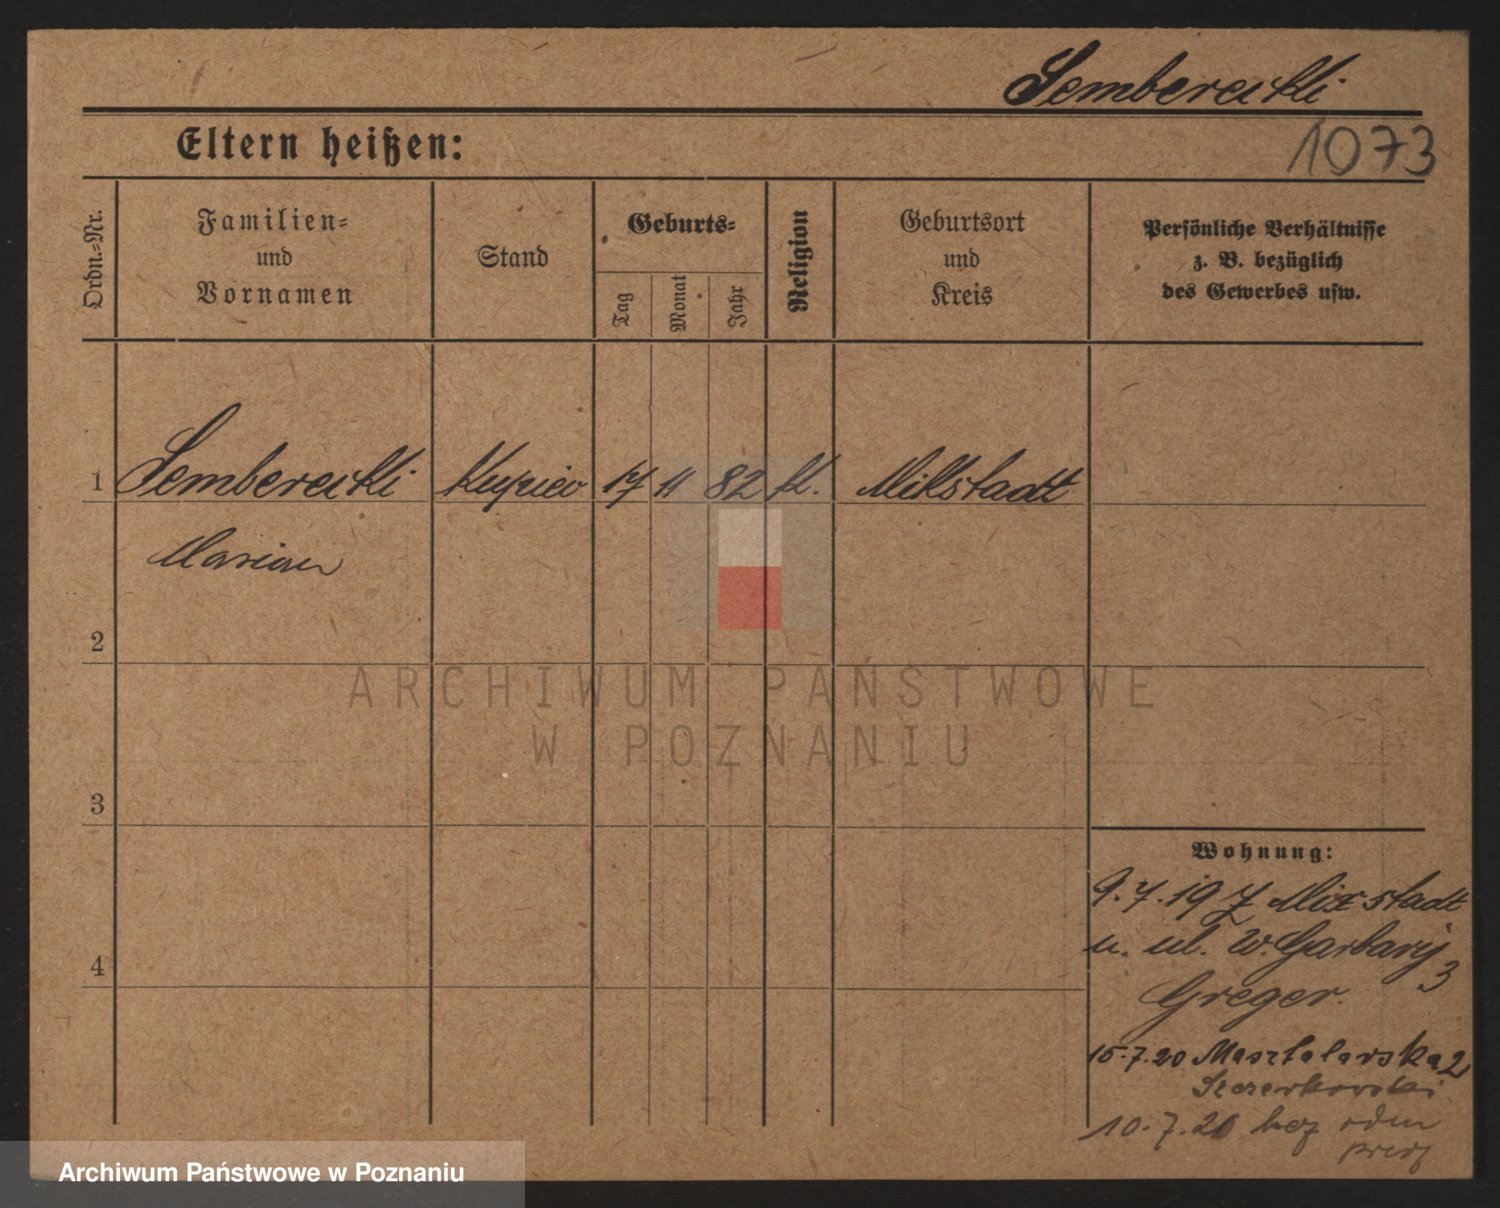 Sembereckti
Eltern heißen:
1073
Ordn.-Nr.
Familien-
und
Vornamen
Stand
Geburts-
Tag
Monat
Jahr
Religion
Geburtsort
und
Kreis
Persönliche Verhältnisse
z. B. bezüglich
des Gewerbes usw.
1 Kupiec 17 11 82 kt.
Marian
2
ARCHIWUM PAŃSTWOWE
W POZNANIU
3
Wohnung:
9.7.19 z Mixstadt
u. ul. W. Garbary 3
4
Greger.
15.7.20 Masztalarska 2
Szczerkowski
10.7.20 bez
Archiwum Państwowe w Poznaniu